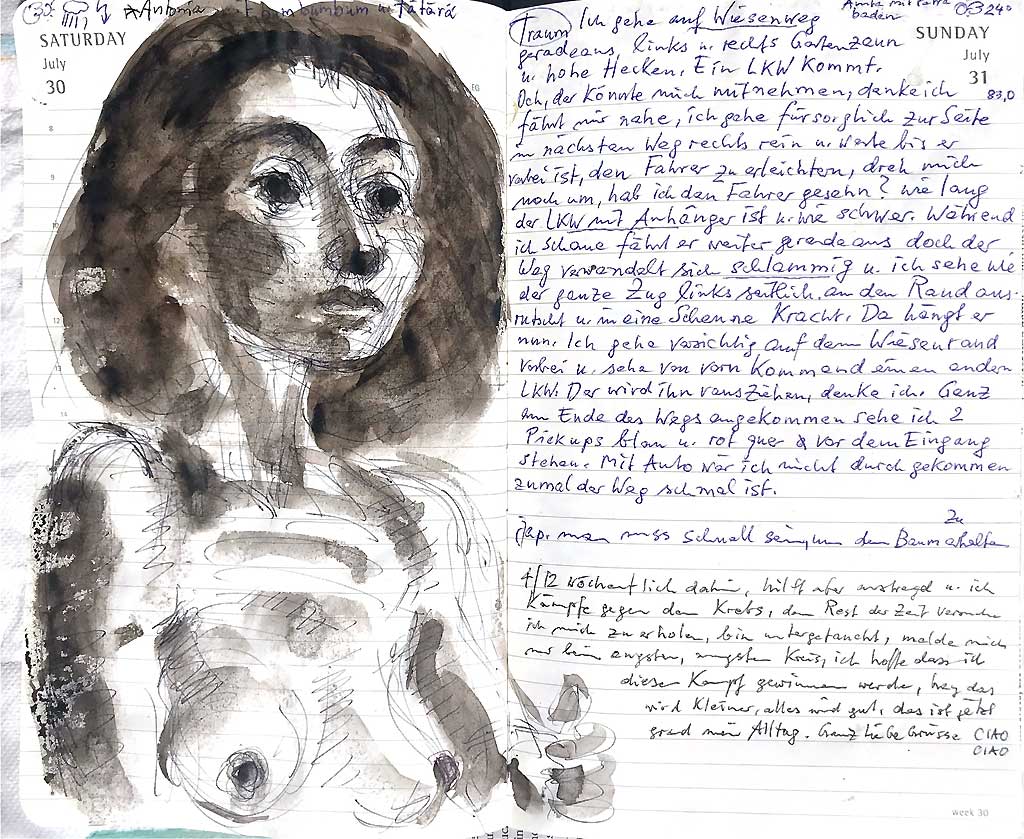 Antonia bumbumbum u. tätärä
SATURDAY
July
30
8
9
10
12
13
14
baden
SUNDAY
July
31
83,0
Traum Ich gehe auf Wiesenweg
geradeaus, links u. rechts Gartenzaun
u. hohe Hecken. Ein LKW kommt.
Och, der könnte mich mitnehmen, denke ich
fährt mir nahe, ich gehe fürsorglich zur Seite
in nächsten Weg rechts rein u. warte bis er
vorbei ist, den Fahrer zu erleichtern, dreh mich
noch um, hab ich den Fahrer gesehn? wie lang
der LKW mit Anhänger ist u. wie schwer. Während
ich schaue fährt er weiter geradeaus doch der
Weg verwandelt sich schlammig u. ich sehe wie
der ganze Zug links seitlich an den Rand aus-
rutscht u. in eine Scheune kracht. Da hängt er
nun. Ich gehe vorsichtig auf dem Wiesenrand
vorbei u. sehe von vorn kommend einen andern
LKW. Der wird ihn rausziehen, denke ich. Ganz
am Ende des Wegs angekommen sehe ich 2
Pickups blau u. rot quer vor dem Eingang
stehen. Mit Auto wär ich nicht durchgekommen
zumal der Weg schmal ist.
zu
jap. man muss schnell sein, um den Baum erhalten
4/12 wöchentlich dahin, hilft aber u. ich
kämpfe gegen den Krebs, den Rest der Zeit versuche
ich mich zu erholen, bin untergetaucht, melde mich
nur beim engsten, engsten Kreis, ich hoffe dass ich
diesen Kampf gewinnen werde, hey das
wird kleiner, alles wird gut, das ist jetzt
grad mein Alltag. Ganz liebe Grüsse CIAO
CIAO
week 30